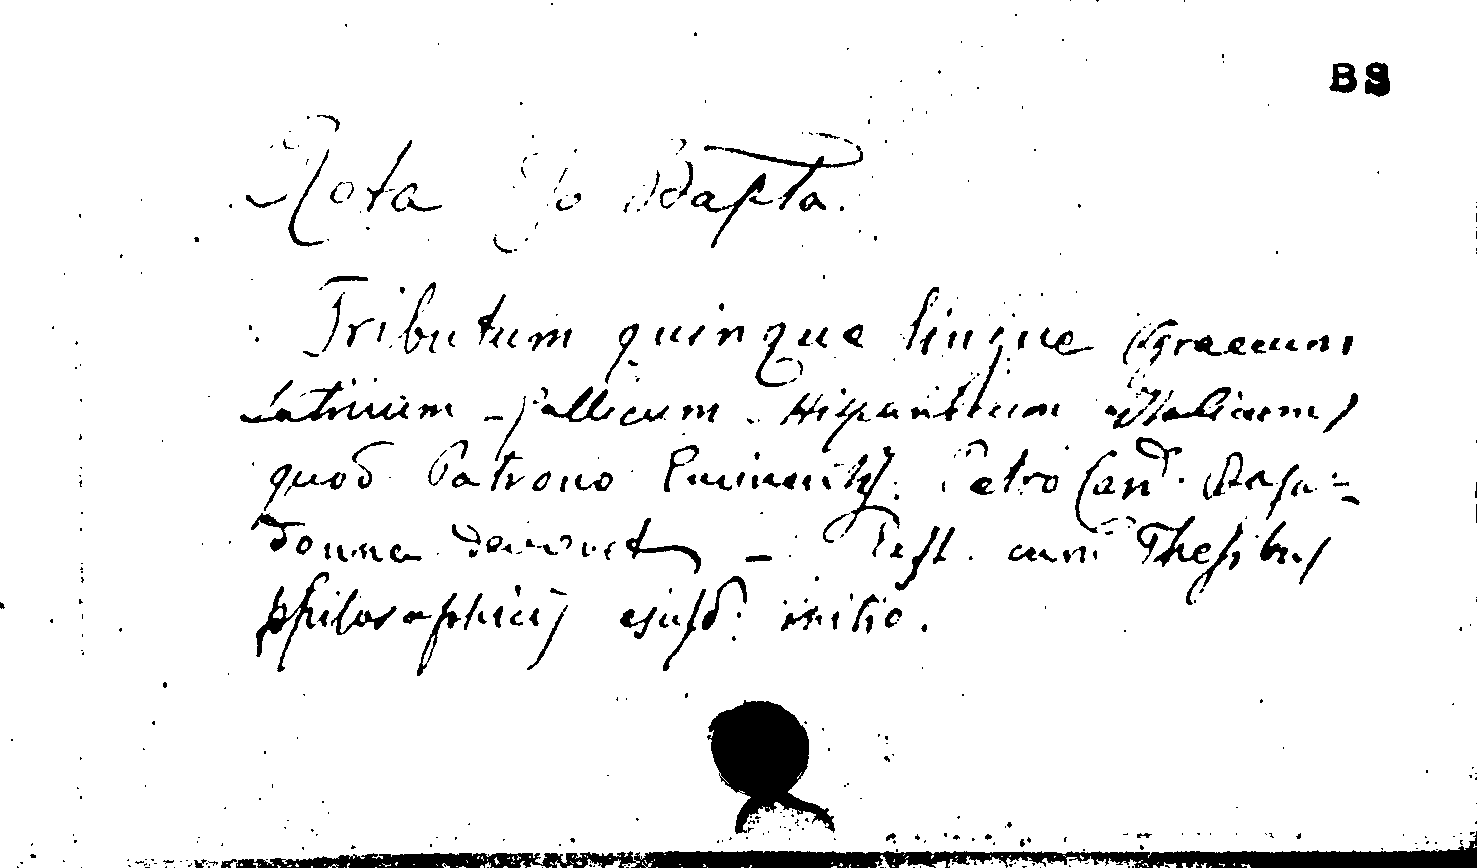 BS
Rota Jo Bapta.
Tributum quinque lingue (graecum
Latinum - gallicum - Hispanicum Italicum)
quod Patrono Eminentiss. Petro Card. Basa-
donna devovet - Est. cum Thesibus
philosophicis ejusd. initio.